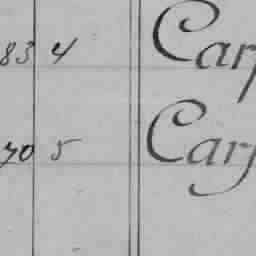 83 4 Carp
70 5 Carp